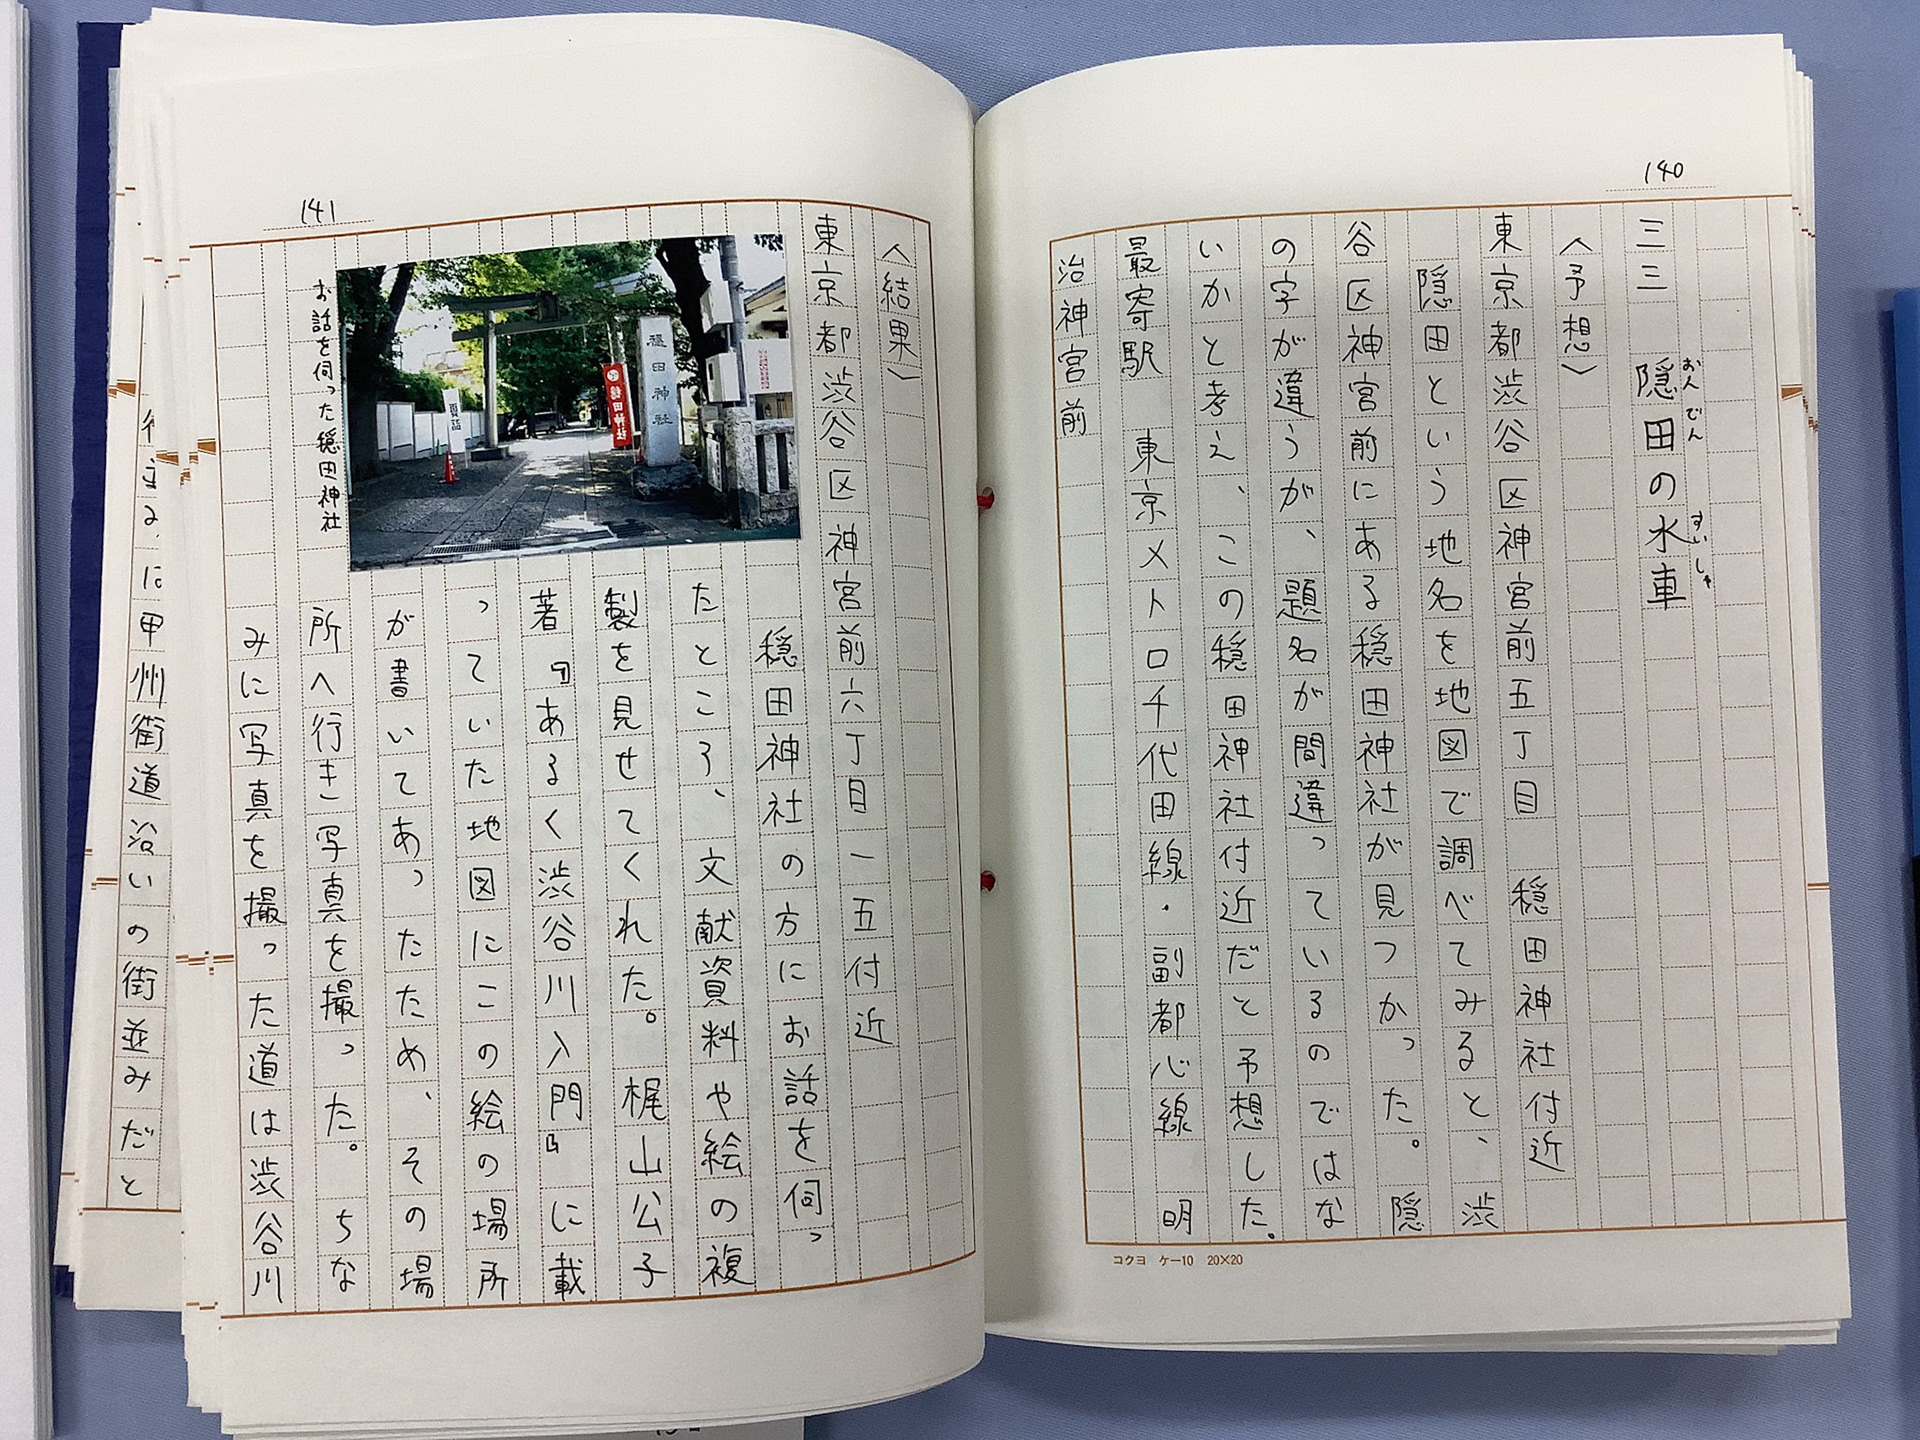 140
三三　隠田の水車
おんでん
すいしゃ
〈予想〉
東京都渋谷区神宮前五丁目　穏田神社付近
隠田という地名を地図で調べてみると、渋
谷区神宮前にある穏田神社が見つかった。隠
の字が違うが、題名が間違っているのではな
いかと考え、この穏田神社付近だと予想した。
最寄駅　東京メトロ千代田線・副都心線　明
治神宮前
コクヨ　ケー10　20×20
141
〈結果〉
東京都渋谷区神宮前六丁目一五付近
穏田神社の方にお話を伺っ
たところ、文献資料や絵の複
製を見せてくれた。梶山公子
著『あるく渋谷川入門』に載
っていた地図にこの絵の場所
が書いてあったため、その場
所へ行き写真を撮った。ちな
みに写真を撮った道は渋谷川
穏田神社
穏田神社
お話を伺った穏田神社
に甲州街道沿いの街並みだと